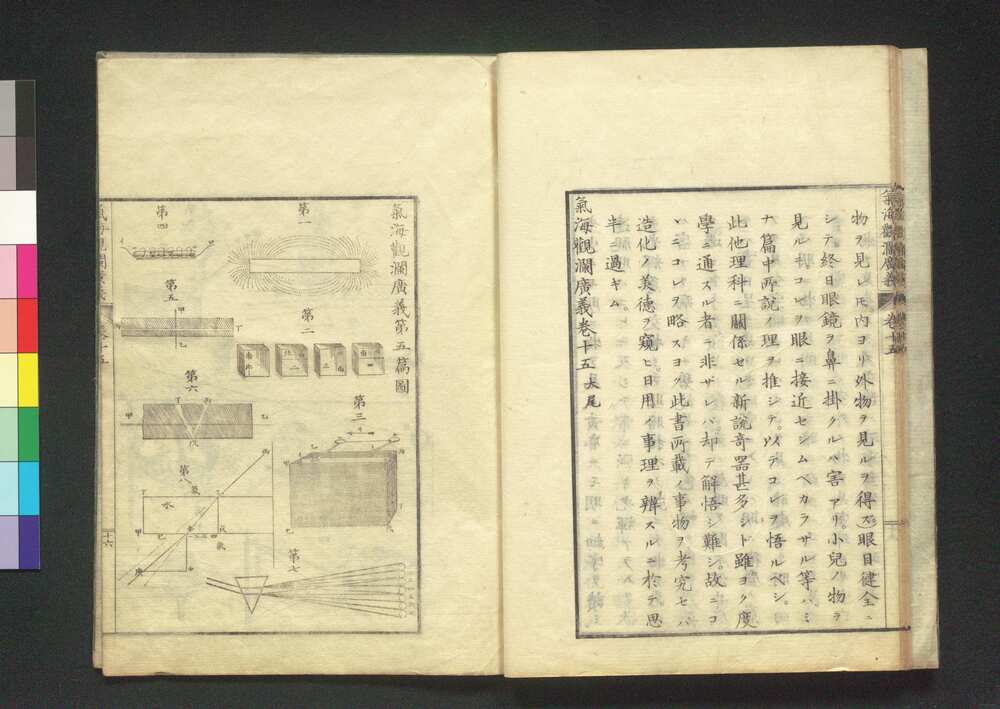 物ヲ見レ𪜈内ヨリ外物ヲ見ルヲ得ズ眼目健全ニ
シテ終日眼鏡ヲ鼻ニ掛クルハ害アリ小兒ノ物ヲ
見ルトキコレヲ眼ニ接近セシムベカラサル等ハミ
ナ篇中所説ノ理ヲ推シテ以テコレヲ悟ルベシ
此他理科ニ關係セル新説奇器甚多シト雖ヨク度
學ニ通スル者ニ非ザレハ却テ解悟シ難シ故ニコ
ヽニコレヲ略スヨク此書所載ノ事物ヲ考究セハ
造化ノ美德ヲ窺ヒ日用ノ事理ヲ辨スルニ於テ思
半ニ過ギム
氣海觀瀾廣義卷十五大尾
氣海觀瀾廣義
卷十五
氣海觀瀾廣義第五篇圖
第一
第二
第三
第四
第五
甲
乙
第六
甲
乙
戊
第七
第八
水
氣海觀瀾廣義
十六